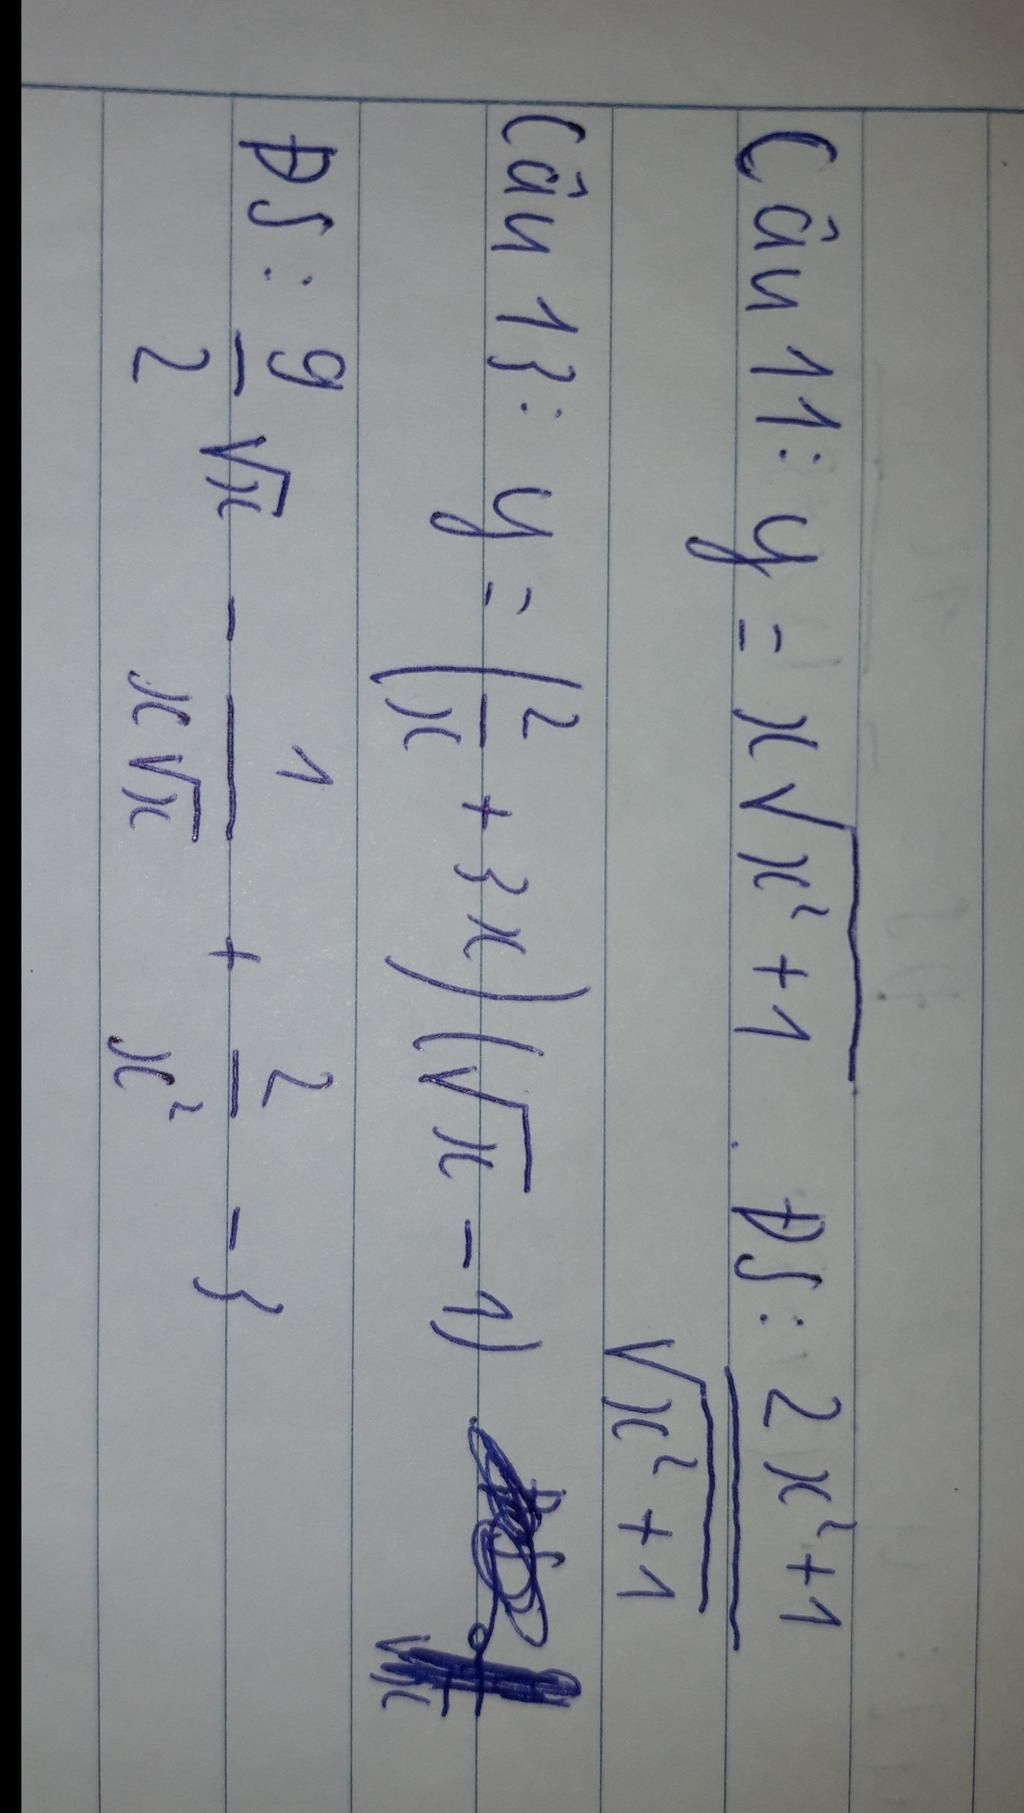 Câu 11: y = x√(x²+1) . ĐS: (2x²+1)/√(x²+1)
Câu 13: y = (2/x + 3x)(√x - 1)
ĐS: 9/2 √x - 1/(x√x) + 2/x² - 3